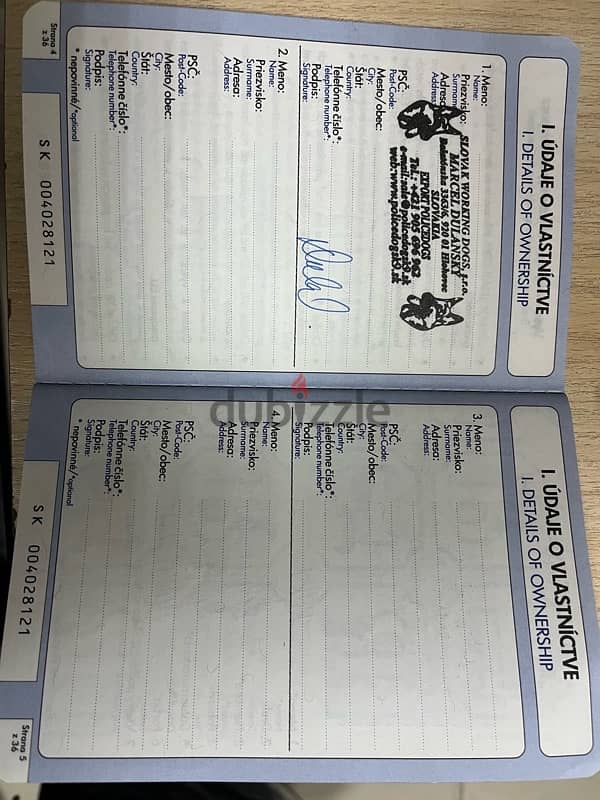 I. ÚDAJE O VLASTNÍCTVE
I. DETAILS OF OWNERSHIP
1. Meno:
Name:
Priezvisko:
Surname:
Adresa:
Address:
PSČ:
Post-Code:
Mesto/obec:
City:
Štát:
Country:
Telefónne číslo*:
Telephone number*:
Podpis:
Signature:
SLOVAK WORKING DOGS, s.r.o.
MARCEL DULANSKÝ
SLOVAKIA
EXPORT POLICEDOGS
Tel.: +421 905 696 962
2. Meno:
Name:
Priezvisko:
Surname:
Adresa:
Address:
PSČ:
Post-Code:
Mesto/obec:
City:
Štát:
Country:
Telefónne číslo*:
Telephone number*:
Podpis:
Signature:
* nepovinné/*optional
SK 004028121
Strana 4
z 36
I. ÚDAJE O VLASTNÍCTVE
I. DETAILS OF OWNERSHIP
3. Meno:
Name:
Priezvisko:
Surname:
Adresa:
Address:
PSČ:
Post-Code:
Mesto/obec:
City:
Štát:
Country:
Telefónne číslo*:
Telephone number*:
Podpis:
Signature:
4. Meno:
Name:
Priezvisko:
Surname:
Adresa:
Address:
PSČ:
Post-Code:
Mesto/obec:
City:
Štát:
Country:
Telefónne číslo*:
Telephone number*:
Podpis:
Signature:
* nepovinné/*optional
SK 004028121
Strana 5
z 36
dubizzle